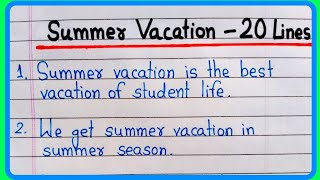 Summer Vacation – 20 Lines
1. Summer vacation is the best
vacation of student life.
2. We get summer vacation in
summer season.